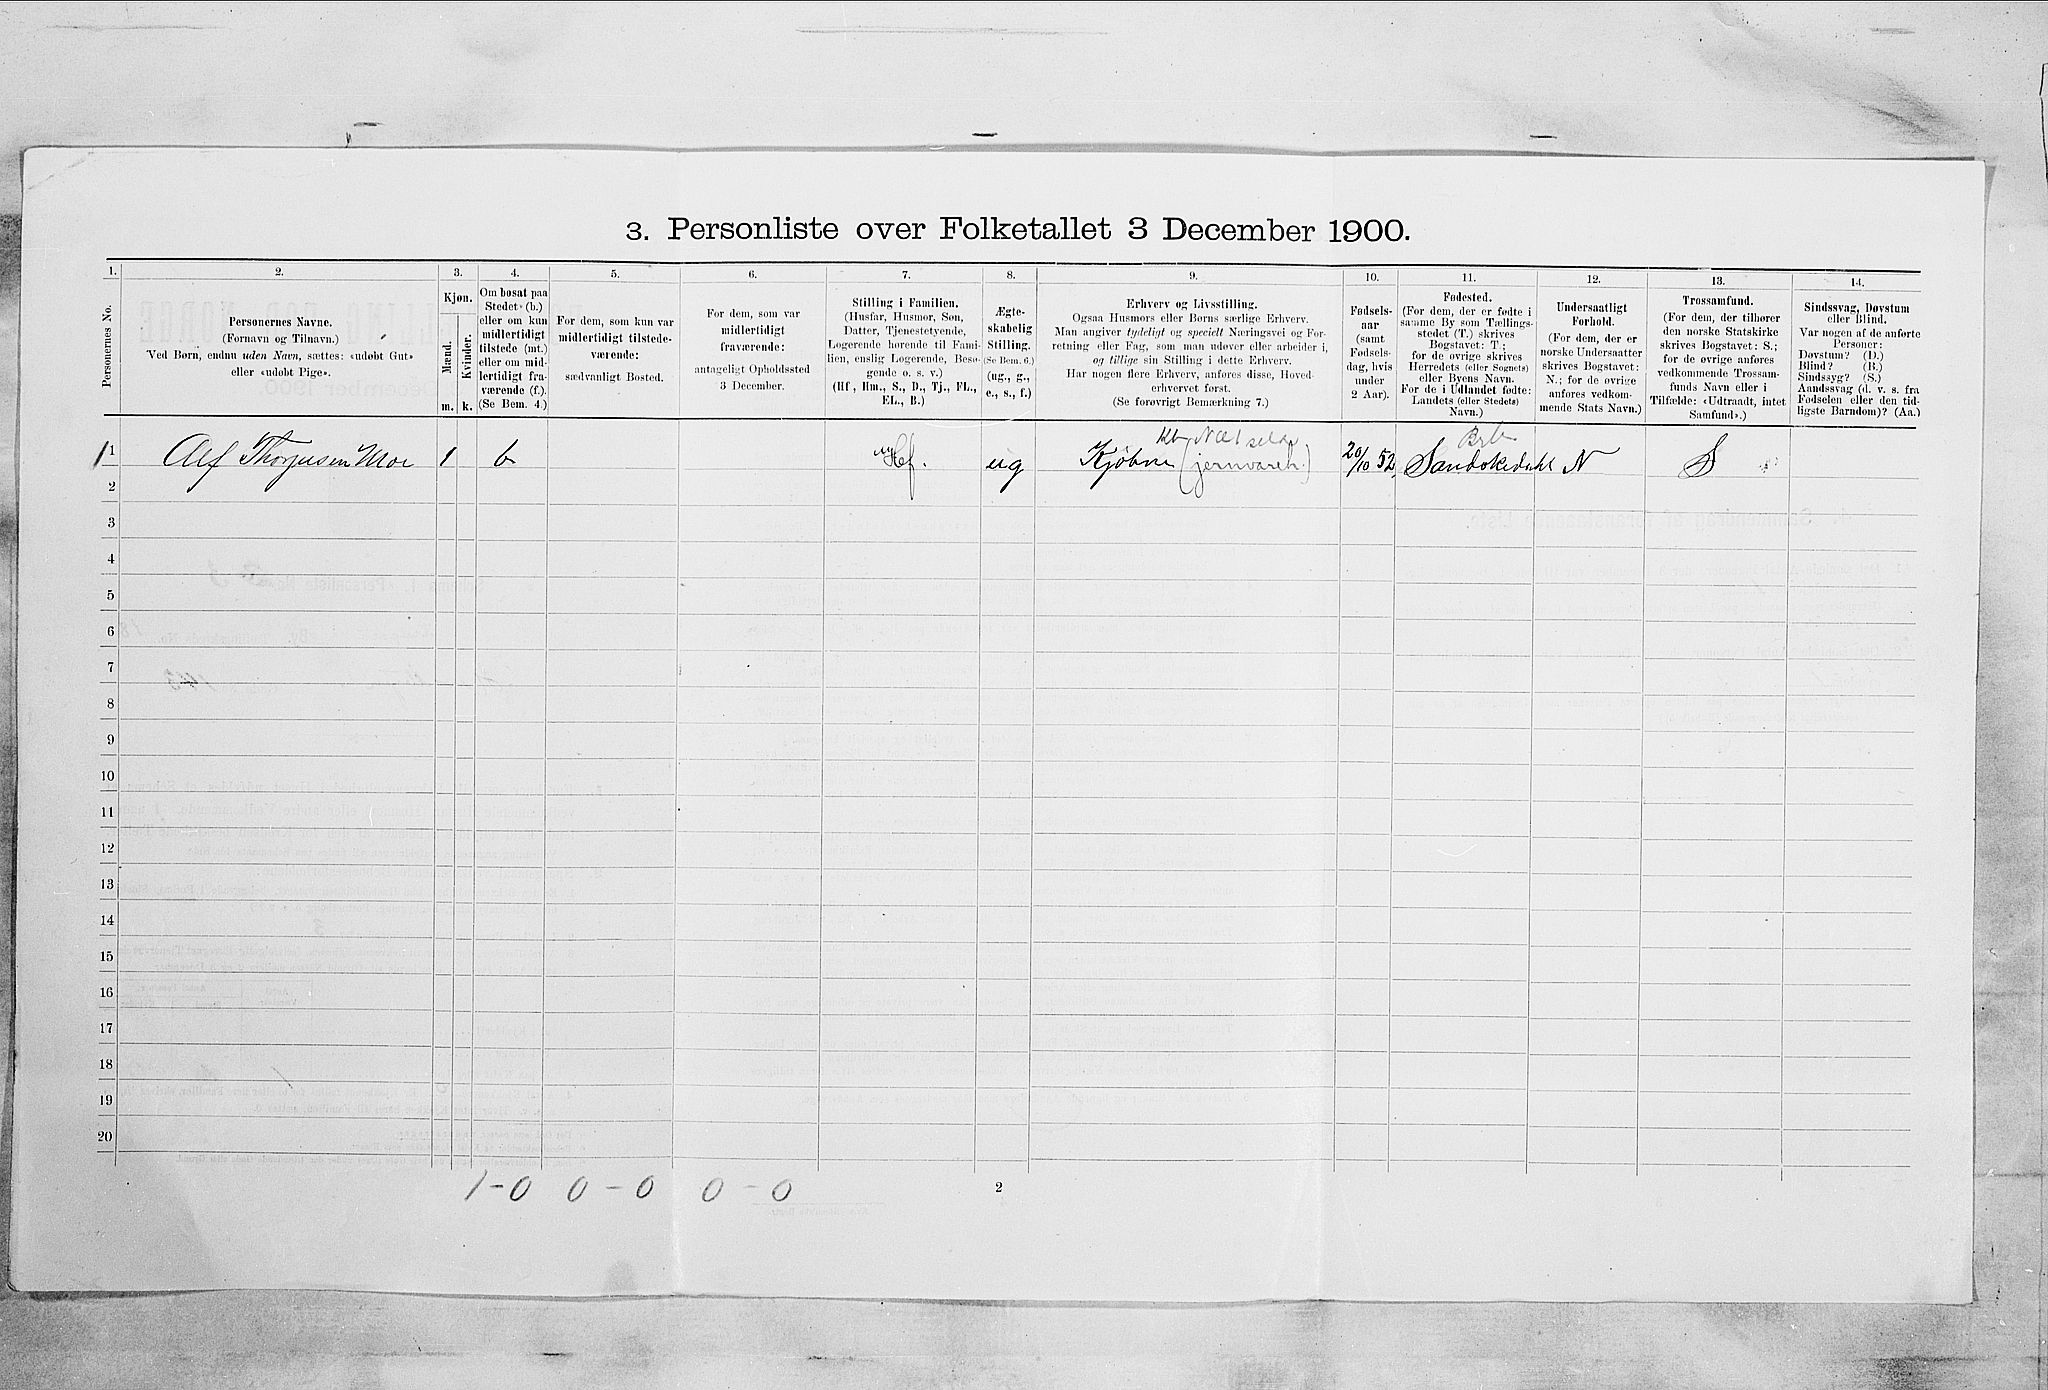 3. Personliste over Folketallet 3 December 1900.
1. 2. 3. 4. 5. 6. 7. 8. 9. 10. 11. 12. 13. 14.
Personernes No.
Personernes Navne.
(Fornavn og Tilnavn.)
Ved Børn, endnu uden Navn, sættes: «udøbt Gut»
eller «udøbt Pige».
Kjøn.
Mænd.
Kvinder.
m. k.
Om bosat paa
Stedet (b.)
eller om kun
midlertidigt
tilstede (mt.)
eller om mid-
lertidigt fra-
værende (f.).
(Se Bem. 4.)
For dem, som kun var
midlertidigt tilstede-
værende:
sædvanligt Bosted.
For dem, som var
midlertidigt
fraværende:
antageligt Opholdssted
3 December.
Stilling i Familien.
(Husfar, Husmor, Søn,
Datter, Tjenestetyende,
Logerende hørende til Fami-
lien, enslig Logerende, Besø-
gende o. s. v.)
(Hf., Hm., S., D., Tj., FL.,
EL., B.)
Ægte-
skabelig
Stilling.
(Se Bem. 6.)
(ug., g.,
e., s., f.)
Erhverv og Livsstilling.
Ogsaa Husmors eller Børns særlige Erhverv.
Man angiver tydeligt og specielt Næringsvei og For-
retning eller Fag, som man udøver eller arbeider i,
og tillige sin Stilling i dette Erhverv.
Har nogen flere Erhverv, anføres disse, Hoved-
erhvervet først.
(Se forøvrigt Bemærkning 7.)
Fødsels-
aar
(samt
Fødsels-
dag, hvis
under
2 Aar).
Fødested.
(For dem, der er fødte i
samme By som Tællings-
stedet (T.) skrives
Bogstavet: T.;
for de øvrige skrives
Herredets (eller Sognets)
eller Byens Navn.
For de i Udlandet fødte:
Landets (eller Stedets)
Navn.)
Undersaatligt
Forhold.
(For dem, der er
norske Undersaatter
skrives Bogstavet:
N.; for de øvrige
anføres vedkom-
mende Stats Navn.)
Trossamfund.
(For dem, der tilhører
den norske Statskirke
skrives Bogstavet: S.;
for de øvrige anføres
vedkommende Trossam-
funds Navn eller i
Tilfælde: «Udtraadt, intet
Samfund».)
Sindssvag, Døvstum
eller Blind.
Var nogen af de anførte
Personer:
Døvstum? (D.)
Blind? (B.)
Sindssyg? (S.)
Aandssvag (d. v. s. fra
Fødselen eller den tid-
ligste Barndom)? (Aa.)
1 1 Alf Thorjusen Moe 1 b Hf. ug Kjøbm (jernvareh.) 20/10 52 Sandökedahl N S
2
3
4
5
6
7
8
9
10
11
12
13
14
15
16
17
18
19
20
1-0 0-0 0-0
2